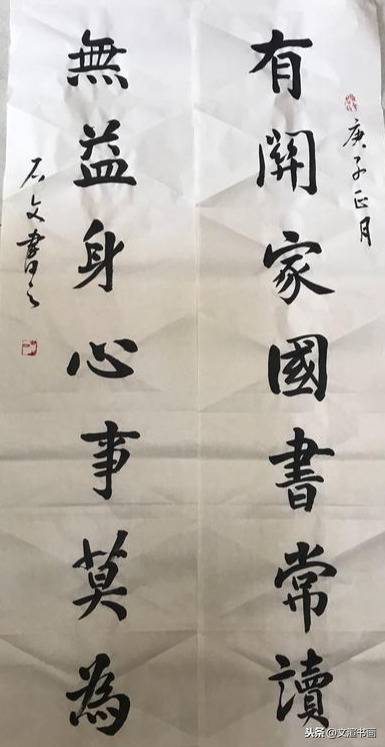 庚子正月
有關家國書常讀
無益身心事莫為
石文書之
头条@文渲书画